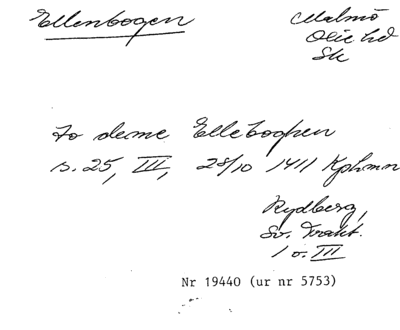 Ellenbogen
Malmö
Oxie hd
Sk
to deme Elleboghen
s. 25, III, 28/10 1411 Kphmn
Rydberg,
Sv. Trakt.
1 o. III
Nr 19440 (ur nr 5753)